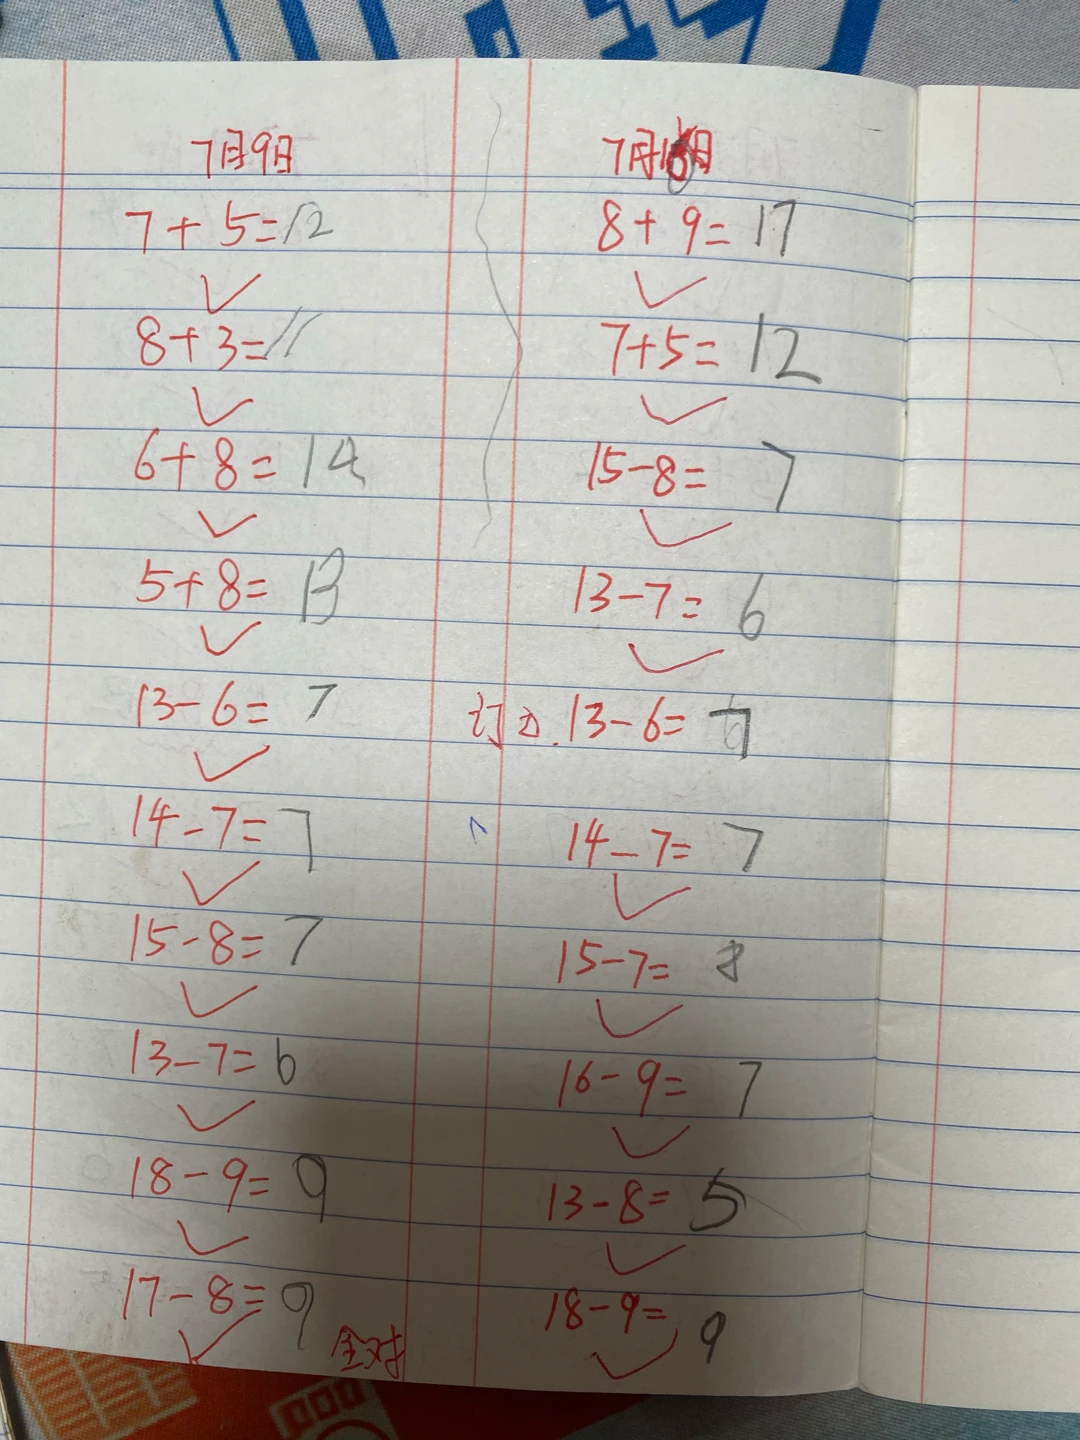 7月9日
7+5=12
8+3=11
6+8=14
5+8=13
13-6=7
14-7=7
15-8=7
13-7=6
18-9=9
17-8=9
全对
7月10日
8+9=17
7+5=12
15-8=7
13-7=6
订正.13-6=7
14-7=7
15-7=8
16-9=7
13-8=5
18-9=9